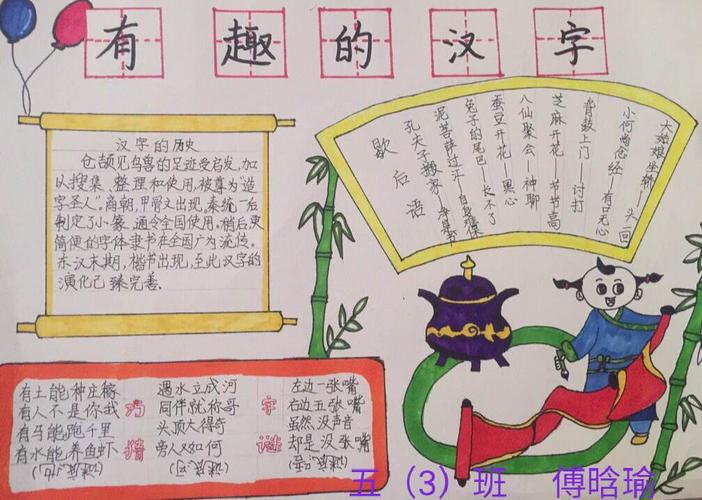 有趣的汉字
汉字的历史
仓颉见鸟兽的足迹受启发，加
以搜集、整理和使用，被尊为"造
字圣人"。商朝，甲骨文出现，秦统一后
制定了小篆，通令全国使用。稍后更
简便的字体隶书在全国广为流传。
东汉末期，楷书出现，至此汉字的
演化已臻完善。
歇后语
孔夫子搬家——净是书
泥菩萨过江——自身难保
兔子的尾巴——长不了
蚕豆开花——黑心
八仙聚会——神聊
芝麻开花——节节高
背鼓上门——讨打
小何尚念经——有口无心
大姑娘坐轿——头一回
有土能种庄稼
有人不是你我
有马能跑千里
有水能养鱼虾
巧猜
遇水立成河
同伴就称哥
头顶大得奇
旁人又如何
字谜
左边一张嘴
右边五张嘴
虽然没声音
却是没张嘴
五（3）班 傅晗瑜